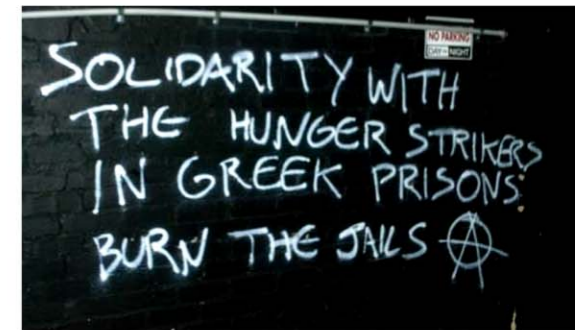 NO PARKING
DAY OR NIGHT
SOLIDARITY WITH
THE HUNGER STRIKERS
IN GREEK PRISONS
BURN THE JAILS Ⓐ